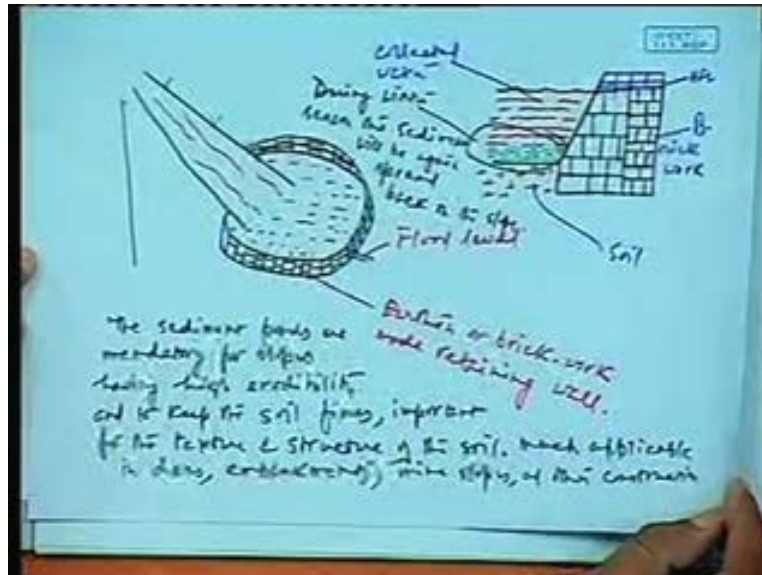 collected
water
During
season the sediment
will be again
spread
back on the slope
Flood level
B-
rick
work
Soil
Earthen or brick-work
made retaining
wall.
The sediment ponds are
mandatory for slopes
having high erodibility
and to keep the soil fines, important
for the texture & structure of the soil. much applicable
in dams, embankments, mine slopes, at their